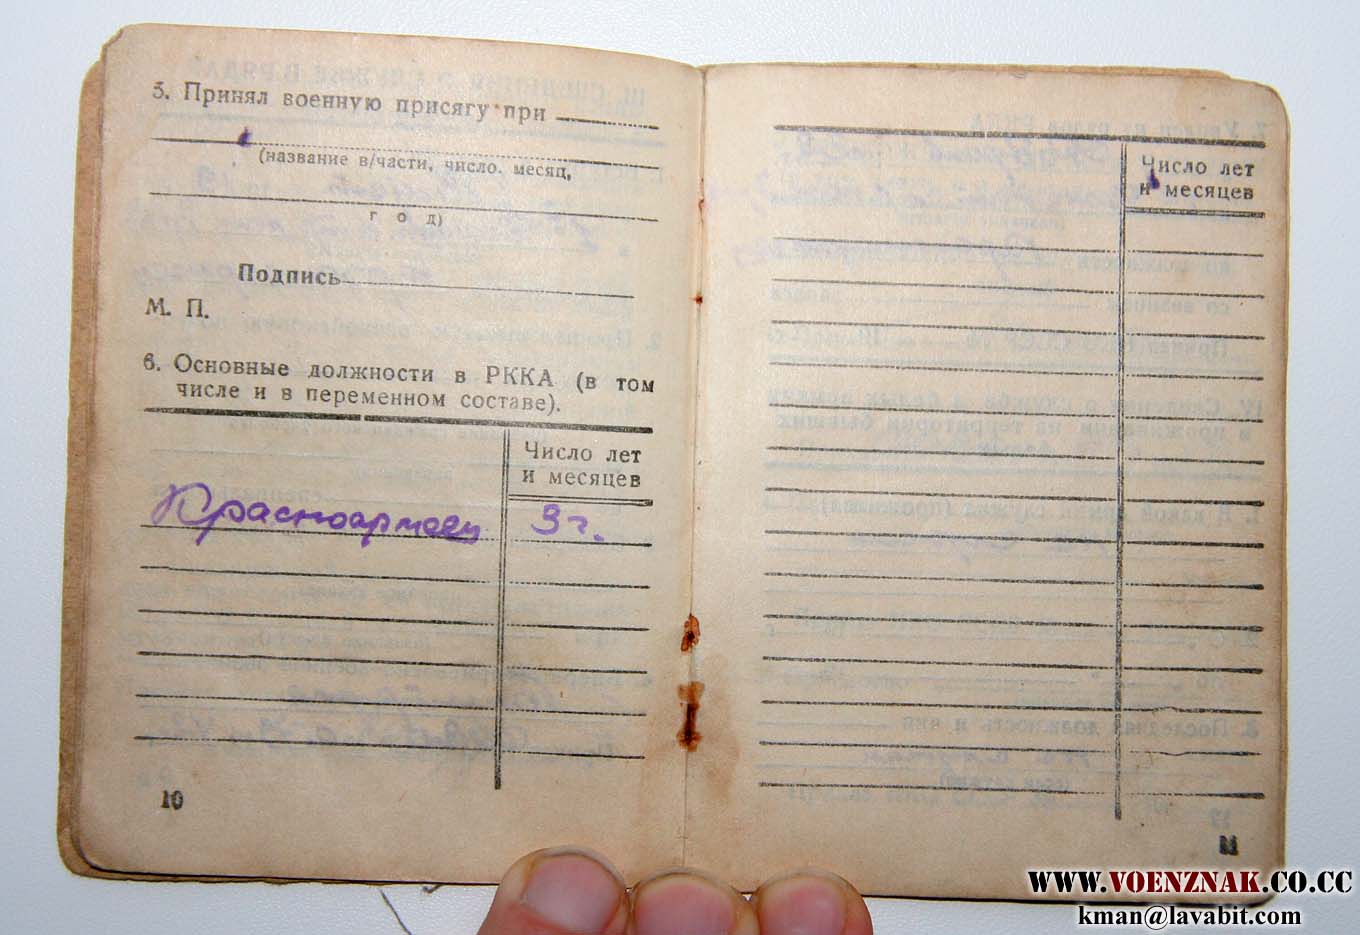 5. Принял военную присягу при
(название в/части, число, месяц,
г о д)
Подпись
М. П.
6. Основные должности в РККА (в том
числе и в переменном составе).
Число лет
и месяцев
Красноармеец 3 г.
10
Число лет
и месяцев
11
WWW.VOENZNAK.CO.CC
kman@lavabit.com